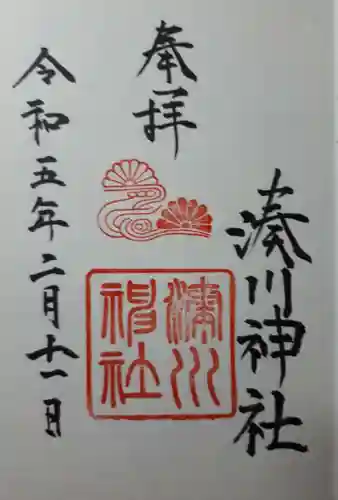 湊川神社
奉拝
湊川神社
令和五年二月十一日